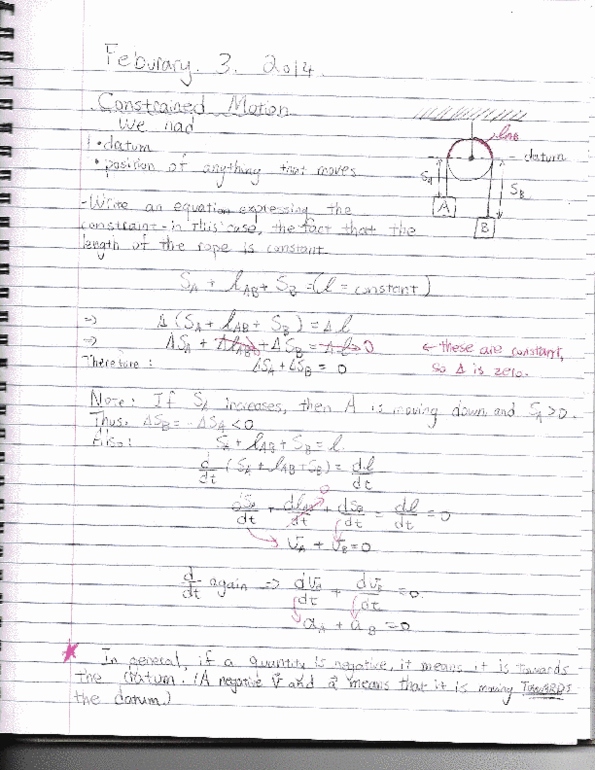 Feburary. 3. 2014.
Constrained Motion
We had
• datum
• position of anything that moves
l_AB
datum
S_A
S_B
A
B
- Write an equation expressing the
constraint - in this case, the fact that the
length of the rope is constant
S_A + l_AB + S_B = (l = constant)
⇒ Δ (S_A + l_AB + S_B) = Δ l
⇒ ΔS_A + Δl_AB + ΔS_B = Δl → 0 ← these are constant,
Therefore: ΔS_A + ΔS_B = 0 so Δ is zero.
Note: If S_A increases, then A is moving down and S_A > 0.
Thus, ΔS_B = -ΔS_A < 0
Also: S_A + l_AB + S_B = l.
d/dt (S_A + l_AB + S_B) = dl/dt
dS_A/dt + dl_AB/dt 0 + dS_B/dt = dl/dt = 0
V_A + V_B = 0
d/dt again ⇒ dV_A/dt + dV_B/dt = 0.
a_A + a_B = 0
* In general, if a quantity is negative, it means it is towards
the datum. (A negative v⃗ and a⃗ means that it is moving TOWARDS
the datum.)